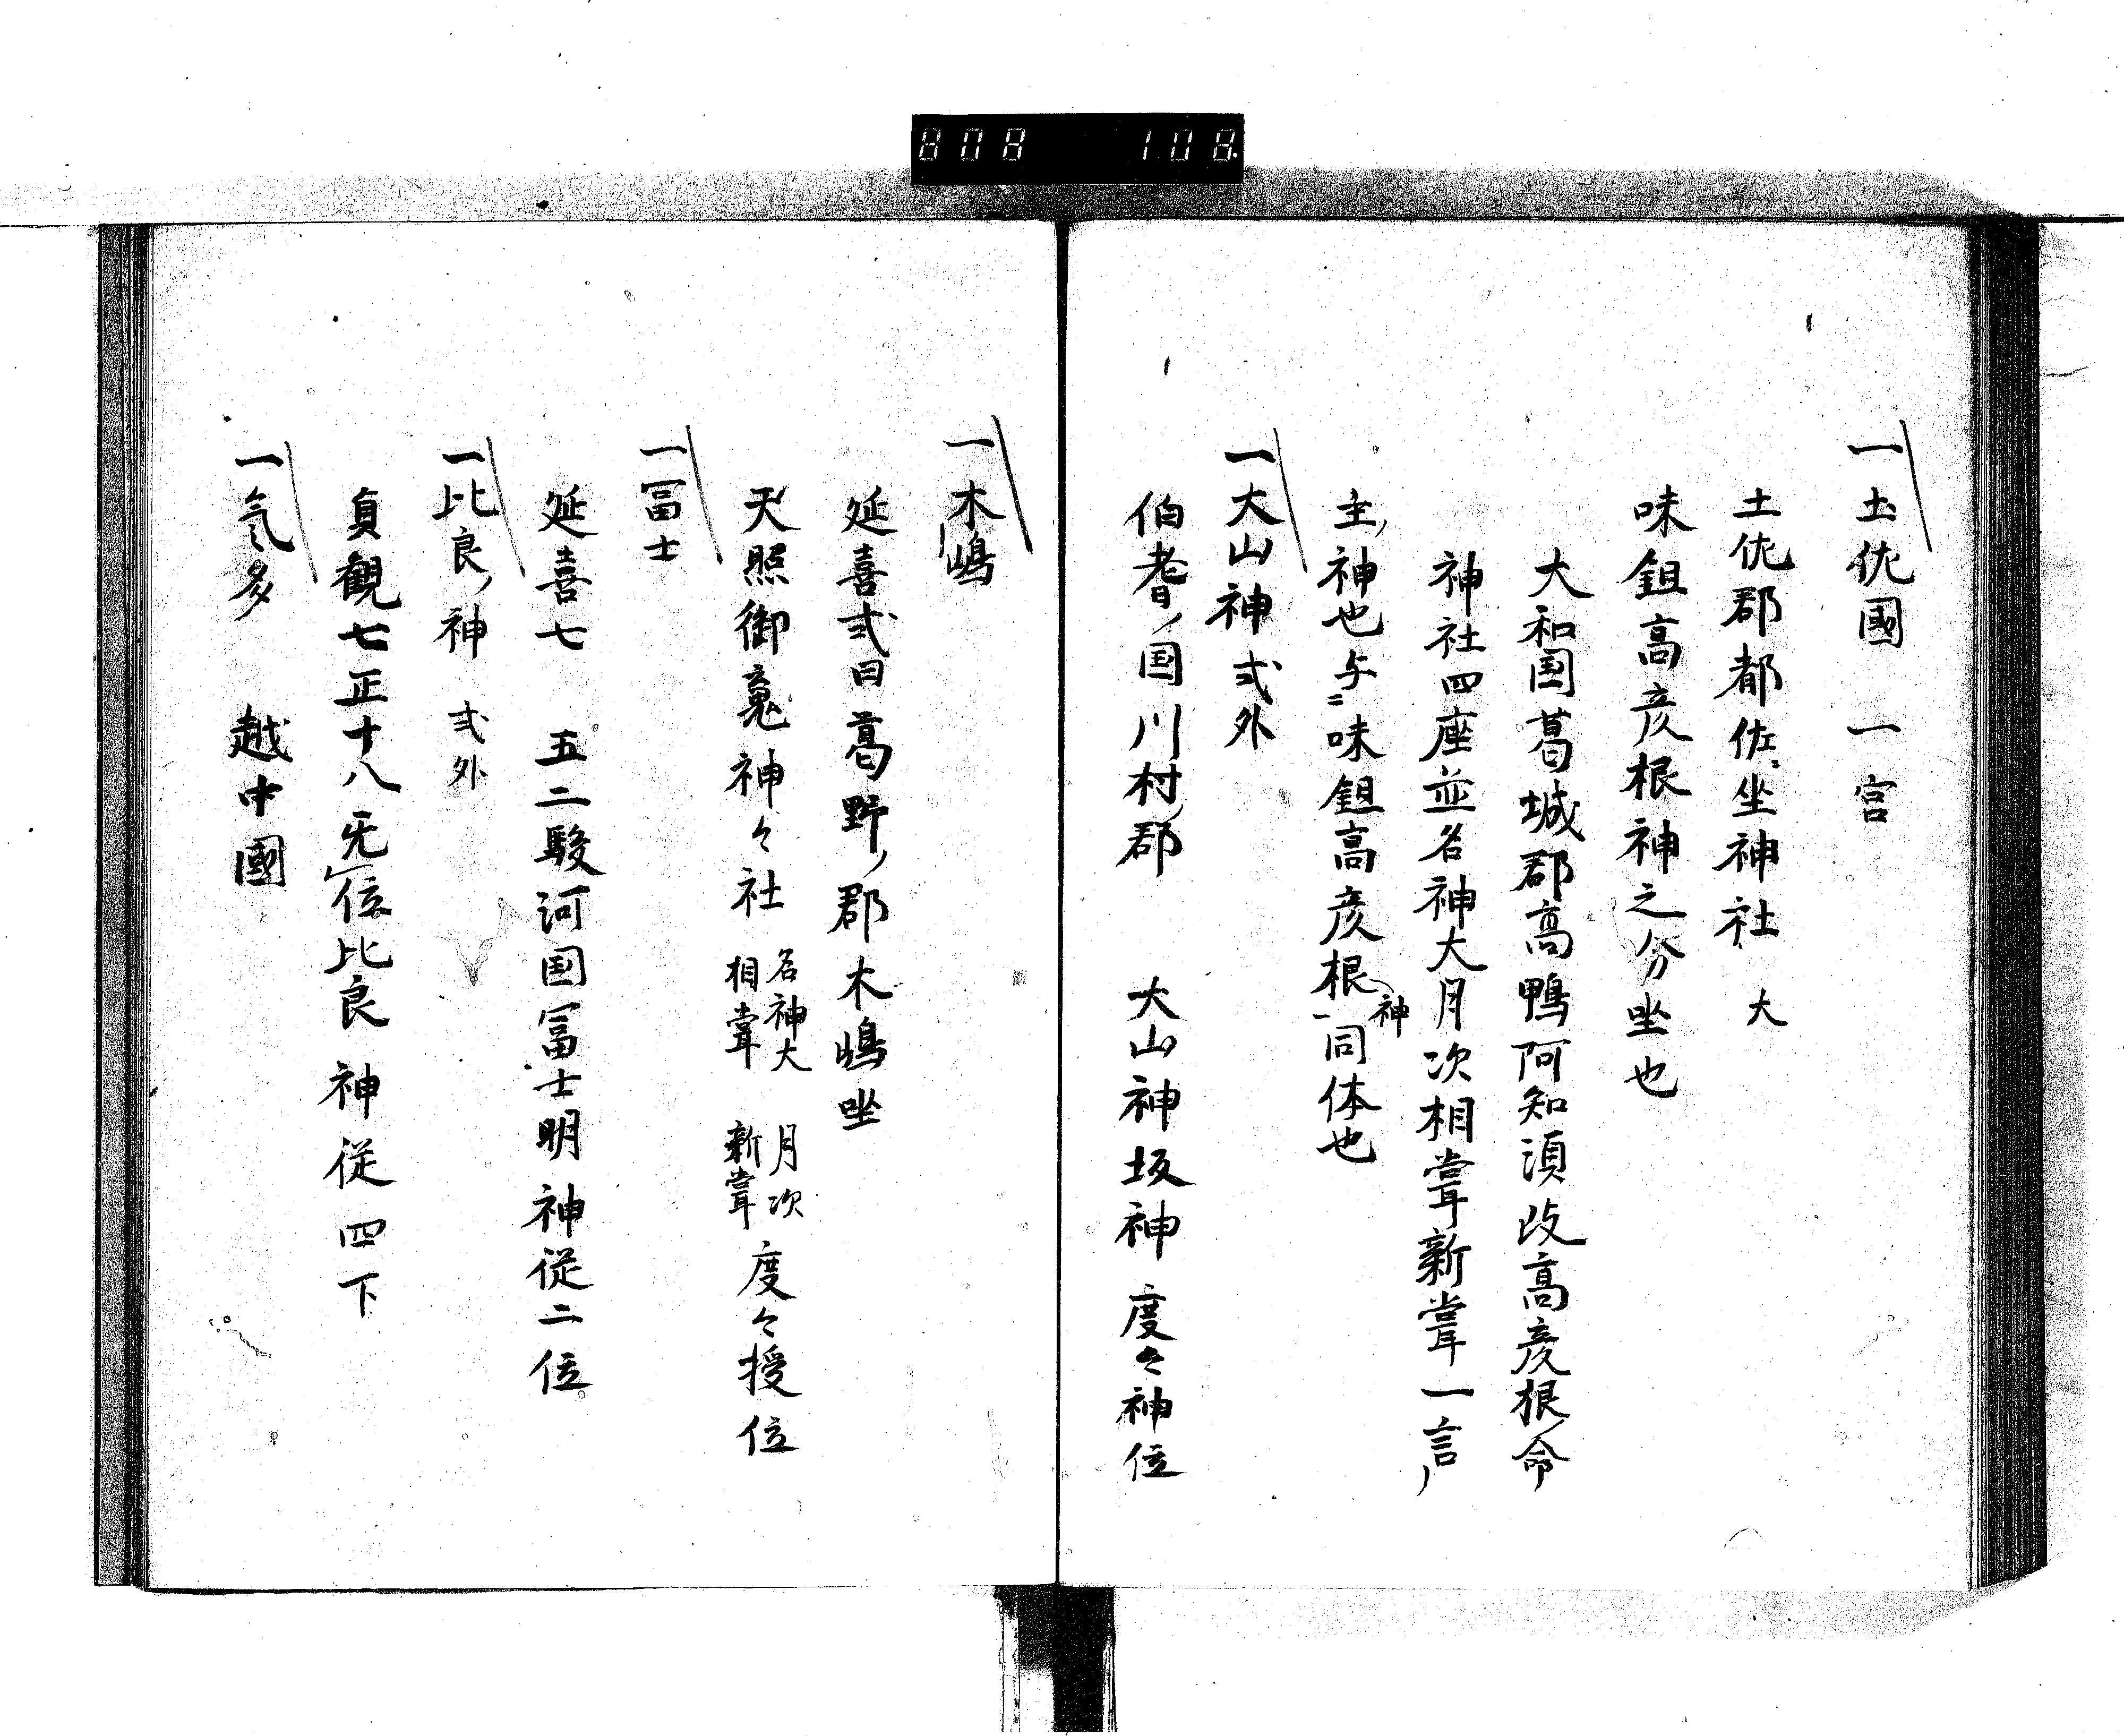 808 108
一土佐國 一宮
土佐郡都佐坐神社 大
味鉏高彦根神之分坐也
大和国葛城郡高鴨阿知須岐高彦根命
神社四座並名神大月次相甞新甞一言ノ
主ノ神也与ニ味鉏高彦根神一同体也
一大山神式外
伯耆ノ国川村郡 大山神坂神 度々神位
一木嶋
延喜式曰葛野ノ郡木嶋坐
天照御魂神々社 名神大 月次 相甞 新甞 度々授位
一冨士
延喜七 五二駿河国冨士明神従二位
一比良ノ神 式外
貞觀七正十八无位比良神従四下
一氣多 越中國